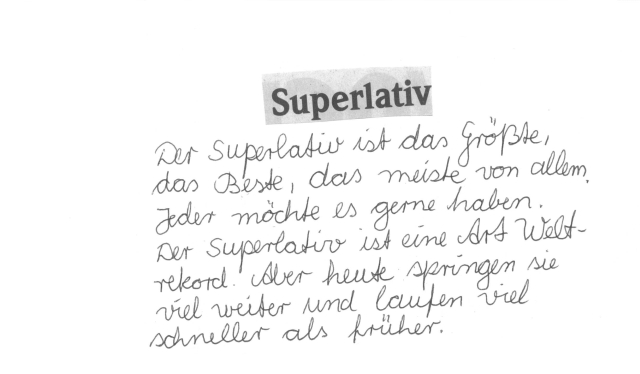 Superlativ
Der Superlativ ist das Größte,
das Beste, das meiste von allem.
Jeder möchte es gerne haben.
Der Superlativ ist eine Art Welt-
rekord. Aber heute springen sie
viel weiter und laufen viel
schneller als früher.